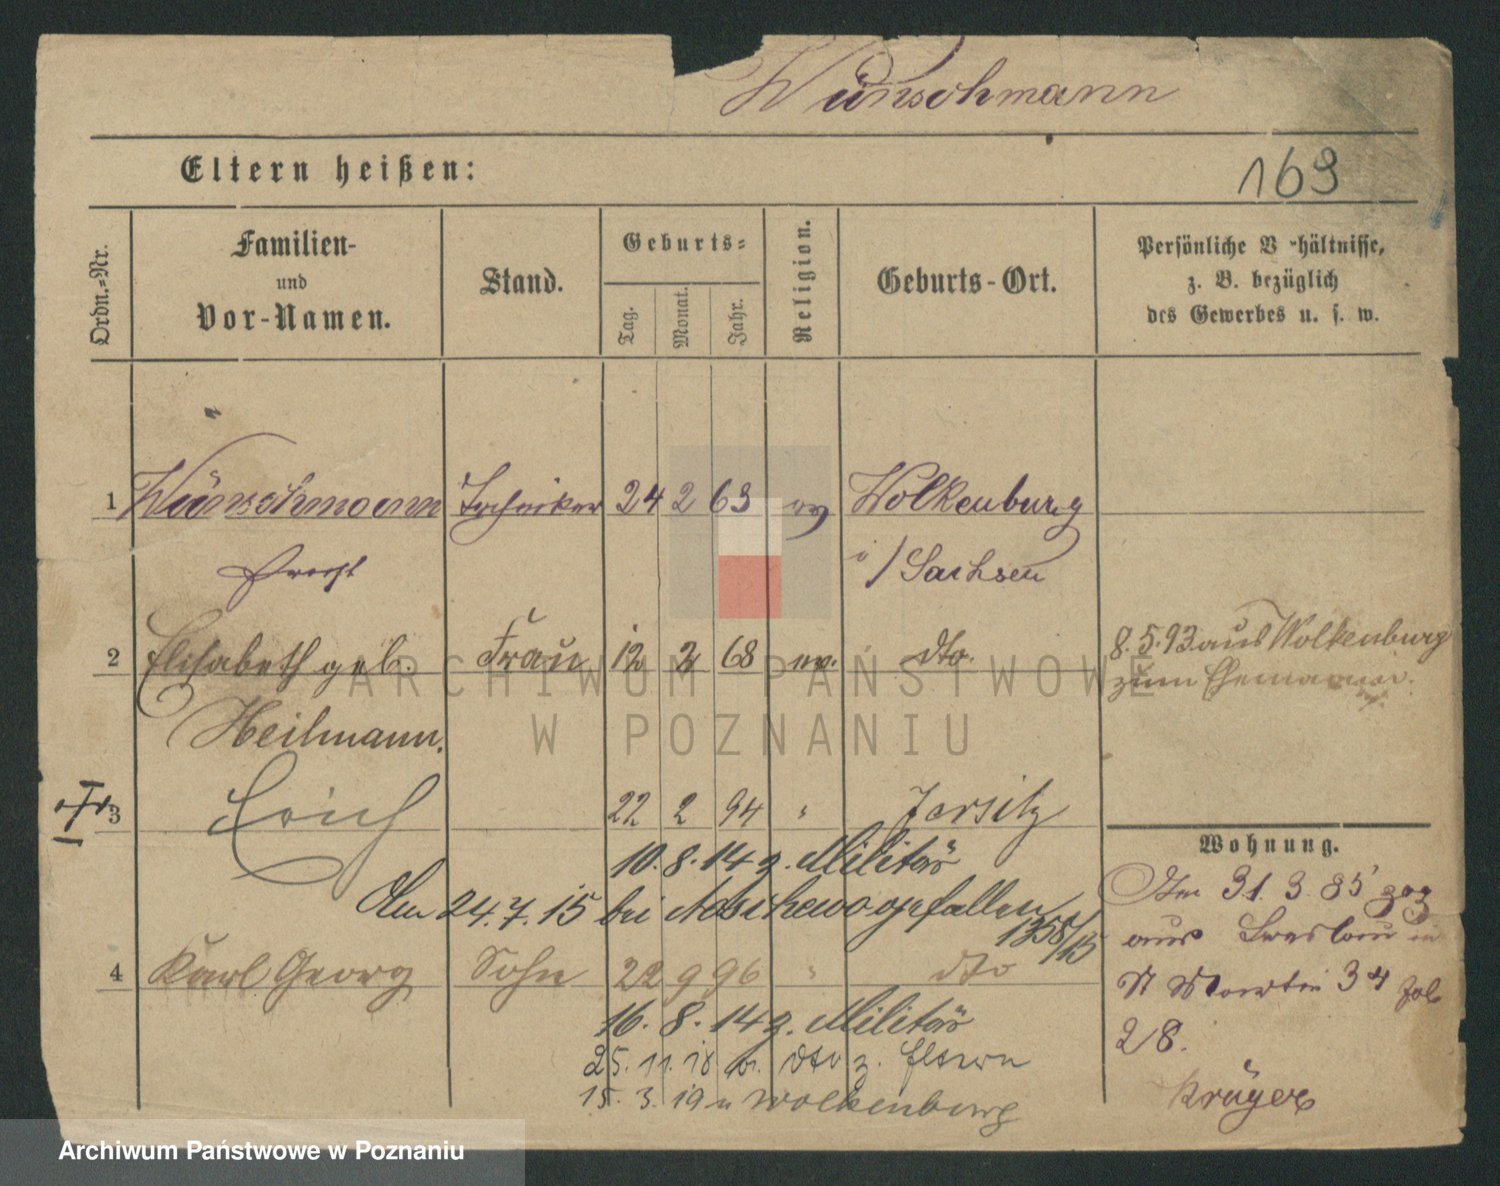 Wünschmann
Eltern heißen:
169
Ordn.-Nr.
Familien-
und
Vor-Namen.
Stand.
Geburts-
Tag.
Monat.
Jahr.
Religion.
Geburts-Ort.
Persönliche V-hältnisse,
z. B. bezüglich
des Gewerbes u. s. w.
1 Wünschmann Techniker 24 2 63 ev Wolkenburg
Ernst i/Sachsen
2 Elisabeth geb. Frau 12 2 68 ev. dto. 8.5.93 aus Wolkenburg
zum Ehemann.
Heilmann.
3 Erich 22 2 94 " Jersitz
10.8.14 z. Militär
Am 24.7.15 bei gefallen
1358/15
4 Karl Georg Sohn 22 9 96 " dto
16.8.14 z. Militär
25.11.18 v. dto z. Eltern
15.3.19 n Wolkenburg
Wohnung.
Am 31.3.85 zog
aus Breslau in
St Martin 34 bei
28.
Krüger
ARCHIWUM PAŃSTWOWE
W POZNANIU
Archiwum Państwowe w Poznaniu